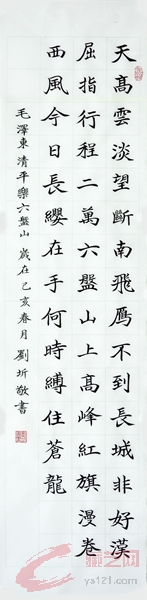 天高雲淡望斷南飛鴈不到長城非好漢
屈指行程二萬六盤山上高峰紅旗漫卷
西風今日長纓在手何時縛住蒼龍
毛澤東清平樂六盤山 歲在己亥春月 劉圻敬書
ys121.com